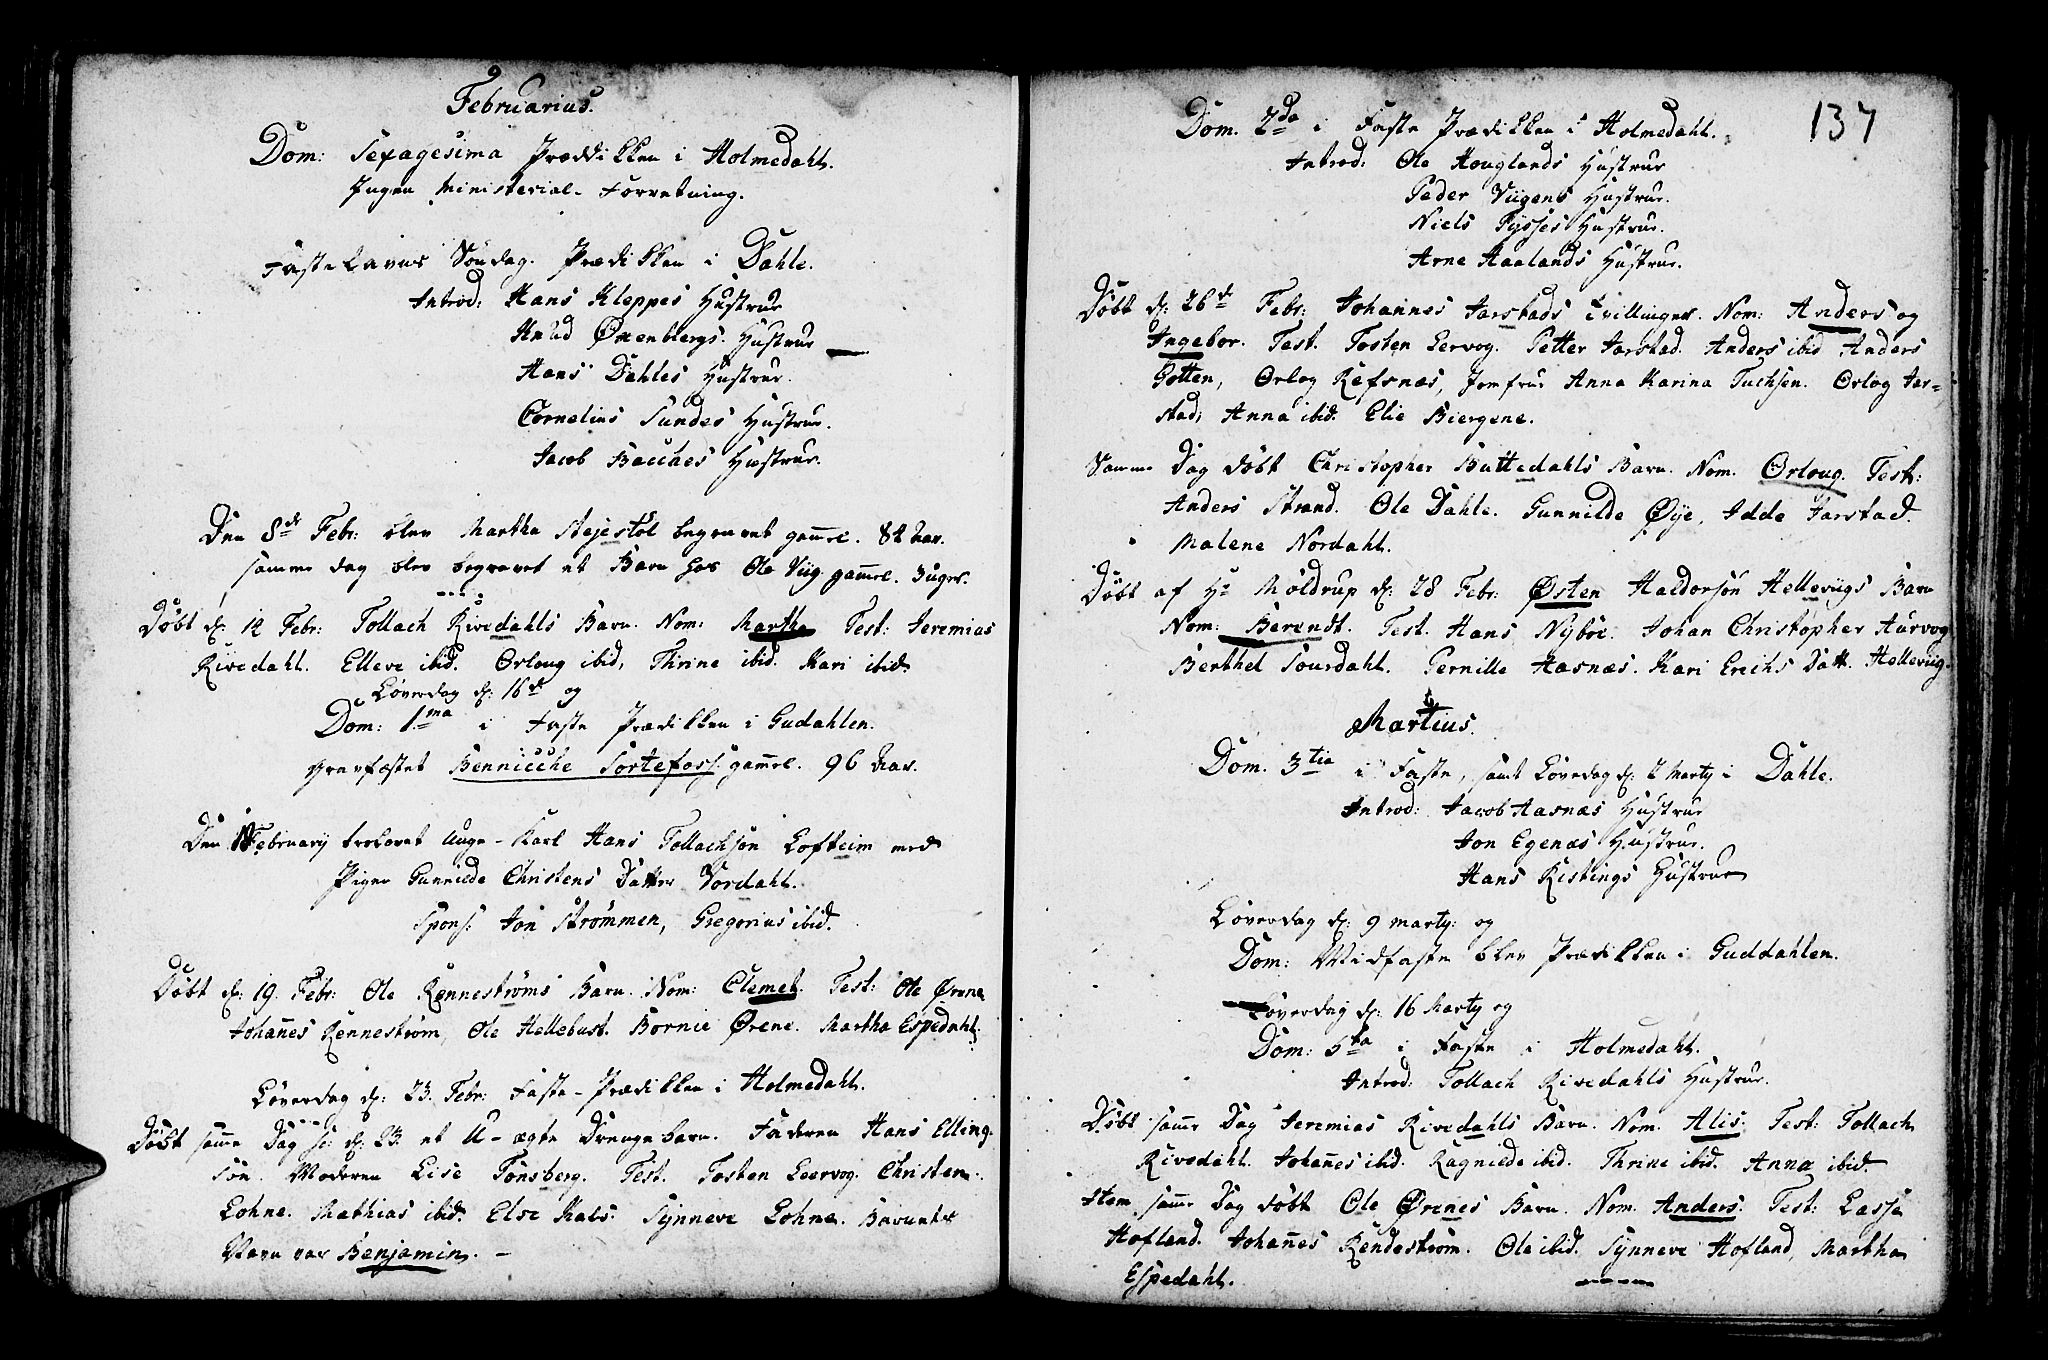 Februarius.
Dom: Sexagesima Prædikken i Holmedahl.
Ingen Ministerial-Forretning.
Fastelavns Søndag. Prædikken i Dahle.
Introd: Hans Kleppes Hustrue
Knud Øxenbergs Hustrue
Hans Dahles Hustrue.
Cornelius Sundes Hustrue.
Jacob Bakkes Hustrue.
Den 8de Febr: blev Martha Stejestøl begravet gaml. 82 Aar.
samme dag blev begravet et Barn hos Ole Viig gaml. 3 uger.
Døbt d: 12 Febr: Tollach Rivedahls Barn. Nom: Martha Test: Jeremias
Rivedahl. Elleve ibid. Orloug ibid, Thrine ibid. Kari ibid
Løverdag d: 16de og
Dom: 1ma i Faste Prædikken i Gudahlen.
gravfæstet Bennicche Sortefoss. gaml. 96 Aar.
Den Februarij trolovet Unge-Karl Hans Tollachsøn Lofteim med
Pigen Gunnilde Christens Datter Nordahl.
Spons. Jon Strømmen, Gregorius ibid.
Døbt d: 19. Febr: Ole Rennestrøms Barn. Nom: Clemet. Test: Ole Ørene
Johañes Rennestrøm, Ole Hellebust. Bornie Ørene. Martha Espedahl.
Løverdag d: 23. Febr: Faste-Prædikken i Holmedahl.
Døbt samme Dag d: 23. et U-ægte Drengebarn. Faderen Hans Elling-
søn. Moderen Lise Tønsberg. Test. Tosten Leervog. Christen
Lohne. Mathias ibid. Else Kals. Synneve Lohne. Barnets
Navn var Benjamin. -
137
Dom. 2da i Faste Prædikken i Holmedahl.
Introd: Ole Houglands Hustrue
Peder Viigens Hustrue.
Niels Tysses Hustrue.
Arne Aaelands Hustrue.
Døbt d: 26de Febr: Johannes Jarstads Tvillinger. Nom: Anders og
Ingebor. Test. Tosten Lervog. Petter Jarstad. Anders ibid Anders
Gotten, Orlog Refsnæs, Jomfrue Anna Karina Tuchsen. Orlog Jar-
stad, Anna ibid. Elie Biergene.
Samme Dag døbt Christopher Buttedahls Barn. Nom. Orloug. Test:
Anders Strand. Ole Dahle. Gunnilde Øye, Idde Jarstad.
Malene Nordahl.
Døbt af Hr Møldrup d: 28 Febr: Østen Haldorsøn Hellevigs Barn
Nom: Berendt. Test. Hans Nybøe. Johan Christopher Aurvog
Berthel Sourdahl. Pernille Aasnæs. Kari Erichs Datt. Hellevig.
Martius.
Dom. 3tia i Faste, samt Løverdag d: 2 Marty i Dahle.
Introd: Jacob Aasnæs Hustrue
Jon Egenæs Hustrue.
Hans Ristings Hustrue
Løverdag d: 9 marty: og
Dom: Midfaste blev Prædikken i Guddahlen.
Løverdag d: 16 Marty og
Dom: 5ta i Faste i Holmedahl.
Introd: Tollach Rivedahls Hustrue.
Døbt samme Dag Jeremias Rivedahls Barn. Nom. Alis. Test: Tollach
Rivedahl. Johañes ibid. Ragnilde ibid. Thrine ibid. Anna ibid
Item samme Dag døbt Ole Ørenes Barn. Nom. Anders. Test: Lasse
Hofland. Johañes Rendestrøm. Ole ibid. Synneve Hofland, Martha
Espedahl.